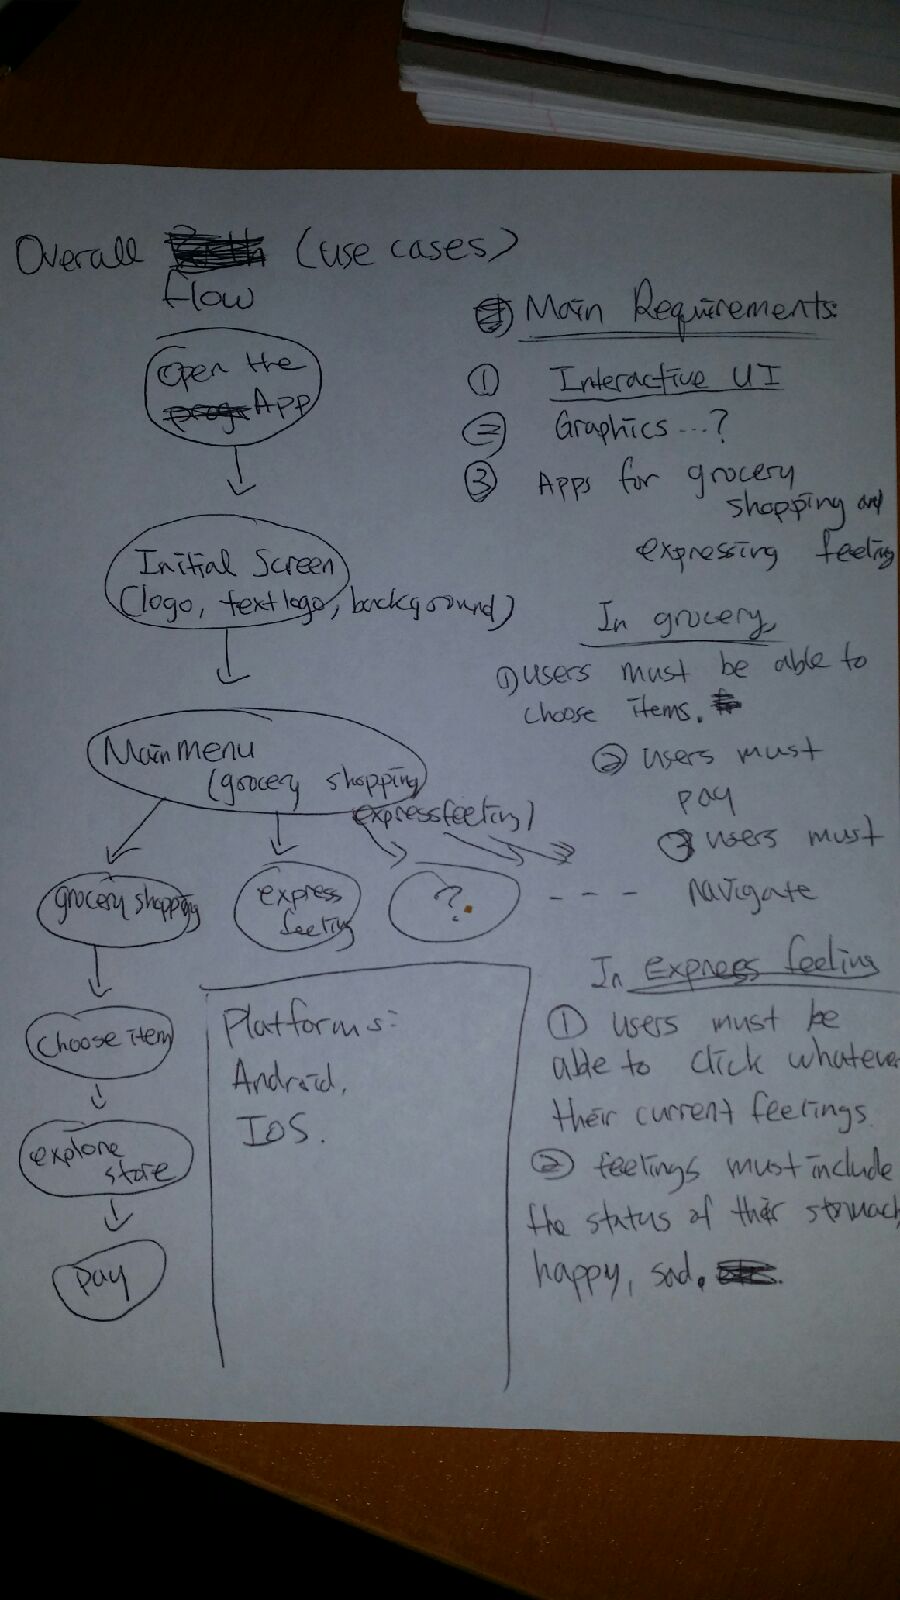 Overall (use cases)
flow
Open the
App
Initial Screen
(logo, text logo, background)
Main menu
(grocery shopping
express feeling)
grocery shopping
express
feeling
?
- - -
choose item
explore
store
pay
Platforms:
Android,
IOS.
Main Requirements:
① Interactive UI
② Graphics...?
③ Apps for grocery
shopping and
expressing feeling
In grocery,
① users must be able to
choose items.
② users must
pay
③ users must
navigate
In express feeling
① users must be
able to click whatever
their current feelings.
② feelings must include
the status of their stomach,
happy, sad.